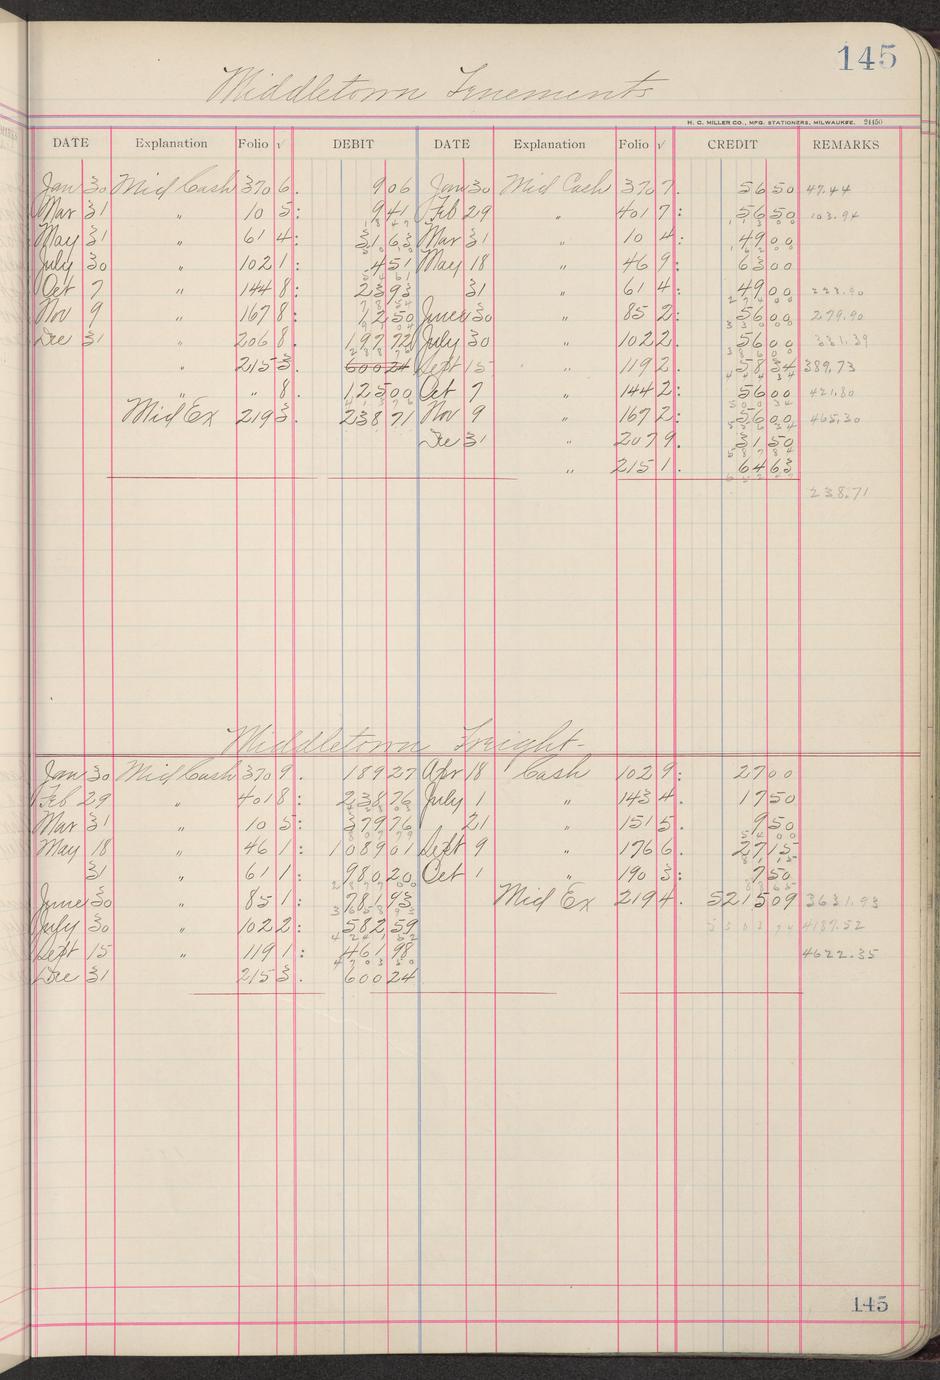 145
Middletown Tenements
H. C. MILLER CO., MFG. STATIONERS, MILWAUKEE. 21450
DATE Explanation Folio √ DEBIT DATE Explanation Folio √ CREDIT REMARKS
Jan 30 Mid Cash 370 6. 9 06 Jan 30 Mid Cash 370 7. 56 50 47.44
Mar 31 " 10 5: 9 41 Feb 29 " 401 7: 56 50 103.94
May 31 " 61 4: 31 63 Mar 31 " 10 4: 49 00
July 30 " 102 1: 4 51 May 18 " 46 9: 63 00
Oct 7 " 144 8: 23 93 31 " 61 4: 49 00 223.90
Nov 9 " 167 8: 12 50 June 30 " 85 2: 56 00 279.90
Dec 31 " 206 8. 197 72 July 30 " 102 2: 56 00 331.39
" 215 3. 600 24 Sept 15 " 119 2: 58 34 389.73
" " 8. 125 00 Oct 7 " 144 2: 56 00 421.80
Mid Ex 219 3. 238 71 Nov 9 " 167 2: 56 00 465.30
Dec 31 " 207 9. 31 50
" 215 1. 64 63
238.71
Middletown Freight
Jan 30 Mid Cash 370 9. 189 27 Apr 18 Cash 102 9: 27 00
Feb 29 " 401 8: 238 76 July 1 " 143 4. 17 50
Mar 31 " 10 5: 379 76 21 " 151 5. 9 50
May 18 " 46 1: 1089 01 Sept 9 " 176 6. 27 15
31 " 61 1: 980 20 Oct 1 " 190 3: 7 50
June 30 " 85 1: 781 93 Mid Ex 219 4. 5215 09 3631.93
July 30 " 102 2: 582 59 4187.52
Sept 15 " 119 1: 461 98 4622.35
Dec 31 215 3. 600 24
145